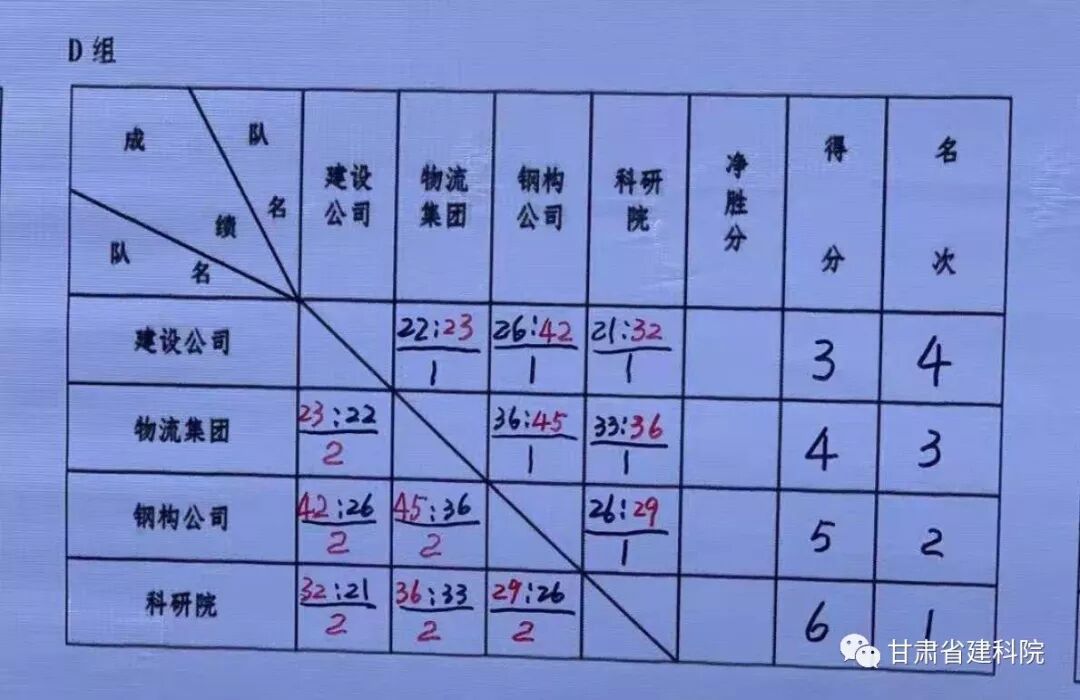 D 组
成 绩
队 名
队 名
建设公司
物流集团
钢构公司
科研院
净胜分
得分
名次
建设公司 22:23 1 26:42 1 21:32 1 3 4
物流集团 23:22 2 36:45 1 33:36 1 4 3
钢构公司 42:26 2 45:36 2 26:29 1 5 2
科研院 32:21 2 36:33 2 29:26 2 6 1
甘肃省建科院